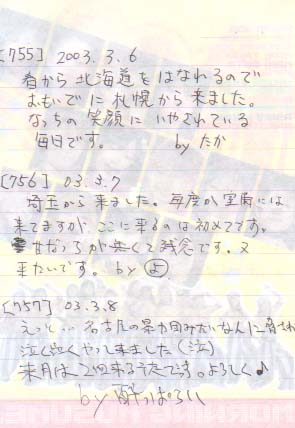 [755] 2003.3.6
春から北海道をはなれるので
おもいでに札幌から来ました。
なっちの笑顔にいやされている
毎日です。 by たか
[756] 03.3.7
埼玉から来ました。毎度か室蘭には
来てますが、ここに来るのは初めてです。
甘なっちが無くて残念です。又
来たいです。 by よ
[757] 03.3.8
えっと… 名古屋の暴力団みたいなんに脅され
泣く泣くやって来ました(泣)
来月は2回来るそうです。よろしく♪
by 酔っぱらい